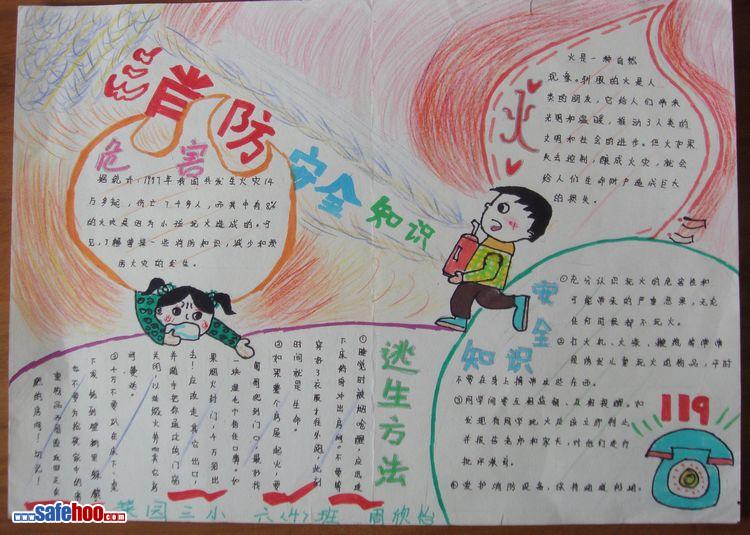 消防安全知识
危害
据统计:1997年我国共发生火灾14
万多起,伤亡7.4多人,而其中有8%
的火灾是因为小孩玩火造成的。可
见,了解掌握一些消防知识,减少和预
防火灾的发生。
火
火是一种自然
现象。驯服的火是人
类的朋友,它给人们带来
光明和温暖,推动了人类的
文明和社会的进步。但火如果
失去控制,酿成火灾,就会
给人们生命财产造成巨大
的损失。
安全知识
①充分认识玩火的危害性和
可能带来的严重恶果,无论
任何时候都不玩火。
②打火机、火柴、鞭炮等
是诱发儿童玩火的物品,平时
不要在身上携带这些东西。
③同学间要互相监督、互相提醒。如
发现有同学玩火应当立即制止
并报告老师和家长,对他们进行
批评教育。
④爱护消防设备,保持烟道刑通。
119
逃生方法
①睡觉时被烟呛醒,应迅速
下床俯身冲出房间。不要等
穿好了衣服才往外跑,此刻
时间就是生命。
②如果整个房屋起火,要
匍匐爬到门口,最好找
一块湿毛巾捂住口鼻。如
果烟火封门,千万别出
去!应改走其它出口,
并随手把你通过的门窗
关闭,以延缓火势向其它房
间蔓延。
③千万不要趴在床下、桌
下或钻到壁橱里躲藏。
也不要为抢救家中的
重物品而冒险返回正在
燃烧的房间!切记!
菜园三小 六(4)班 周欣怡
www.safehoo.com